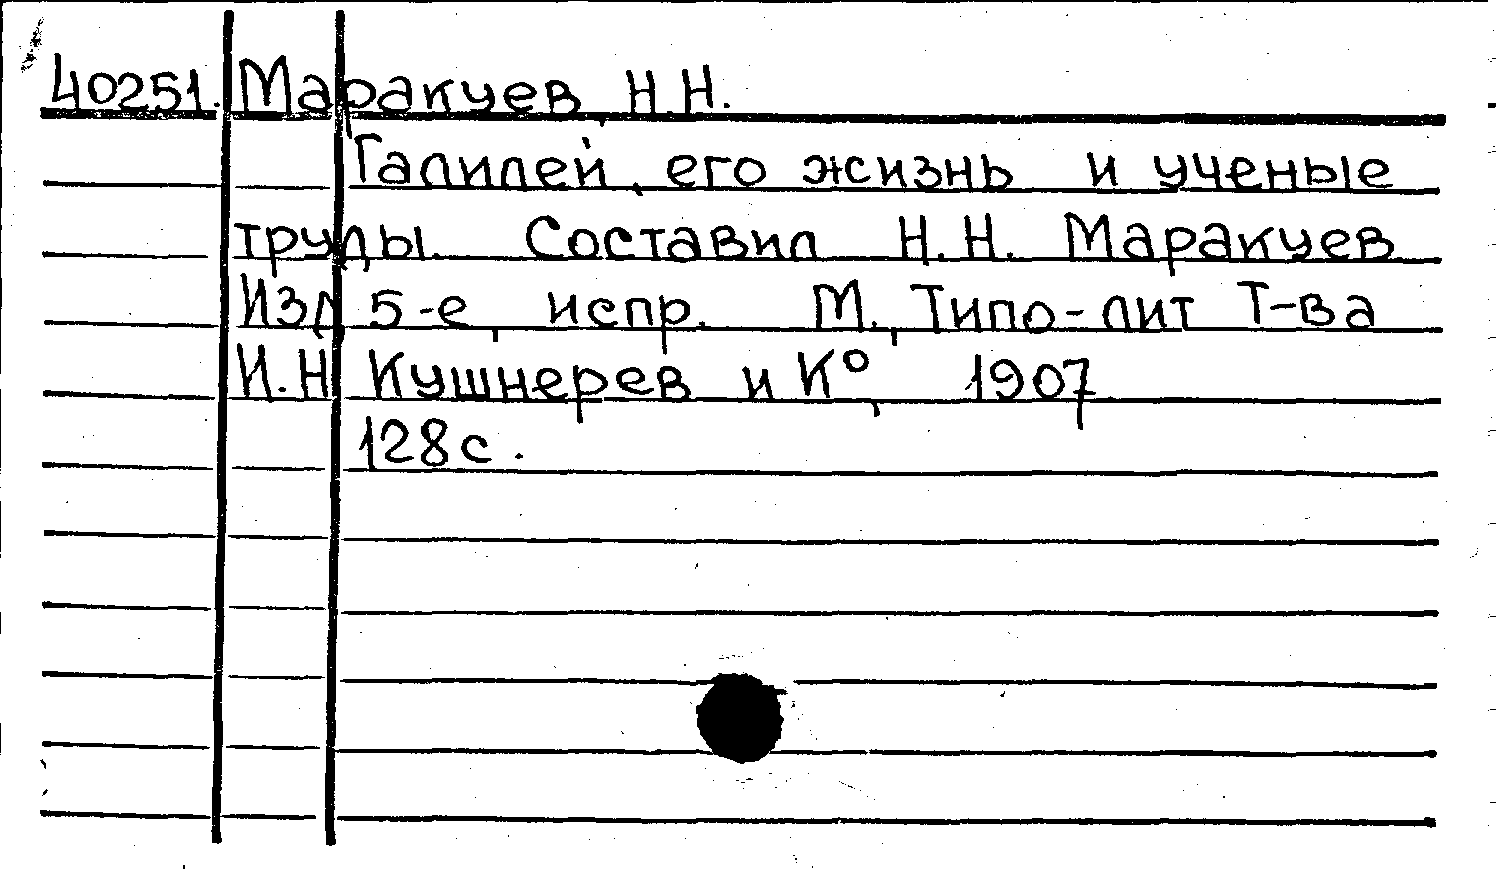 40251. Маракуев, Н.Н.
Галилей, его жизнь и ученые
труды. Составил Н.Н. Маракуев
Изд, 5-е, испр. М., Типо-лит Т-ва
И.Н Кушнерев и К°, 1907
128с.